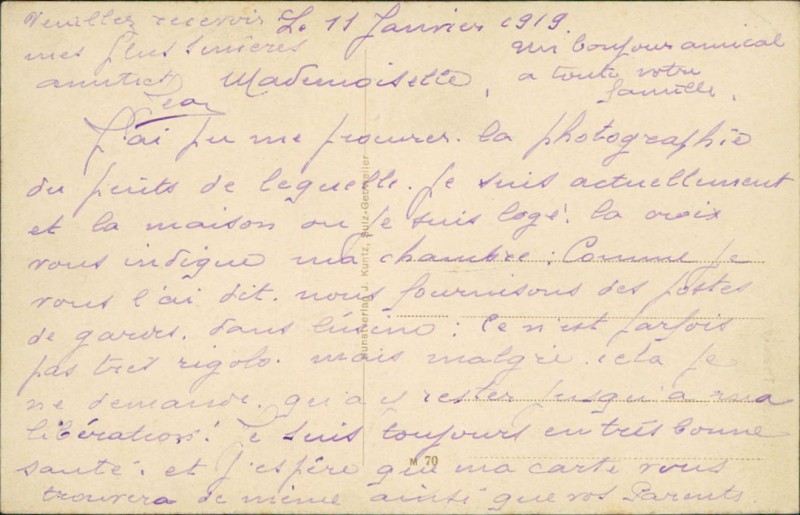 Le 11 Janvier 1919.
Mademoiselle,
J'ai pu me procurer. la photographie
du puits de lequelle. je suis actuellement
et la maison ou je suis logé. la croix
vous indique ma chambre : Comme je
vous l'ai dit. nous fournisons des postes
de gardes. dans l'usine : Ce n'est parfois
pas tres rigolo. mais malgré. cela je
ne demande. qu'a y rester jusqu'a ma
libération! Je suis toujours en très bonne
santé. et j'espére que ma carte vous
trouvera de même ainsi que vos Parents.
Veuillez recevoir
mes plus sincères
amitiés
Jean
un bonjour amical
a toute votre
famille.
Kunstverlag J. Kuntz, Sulz-Gebweiler
M 70